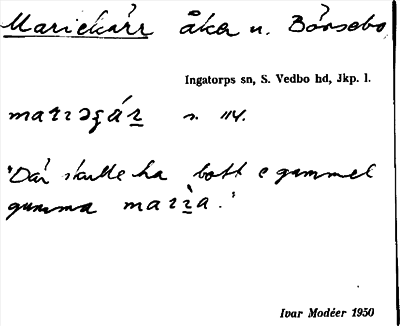 Mariekärr åker u. Börsebo
Ingatorps sn, S. Vedbo hd, Jkp. l.
n. 114.
"Där skulle ha bott e gammel
gumma
Ivar Modéer 1950